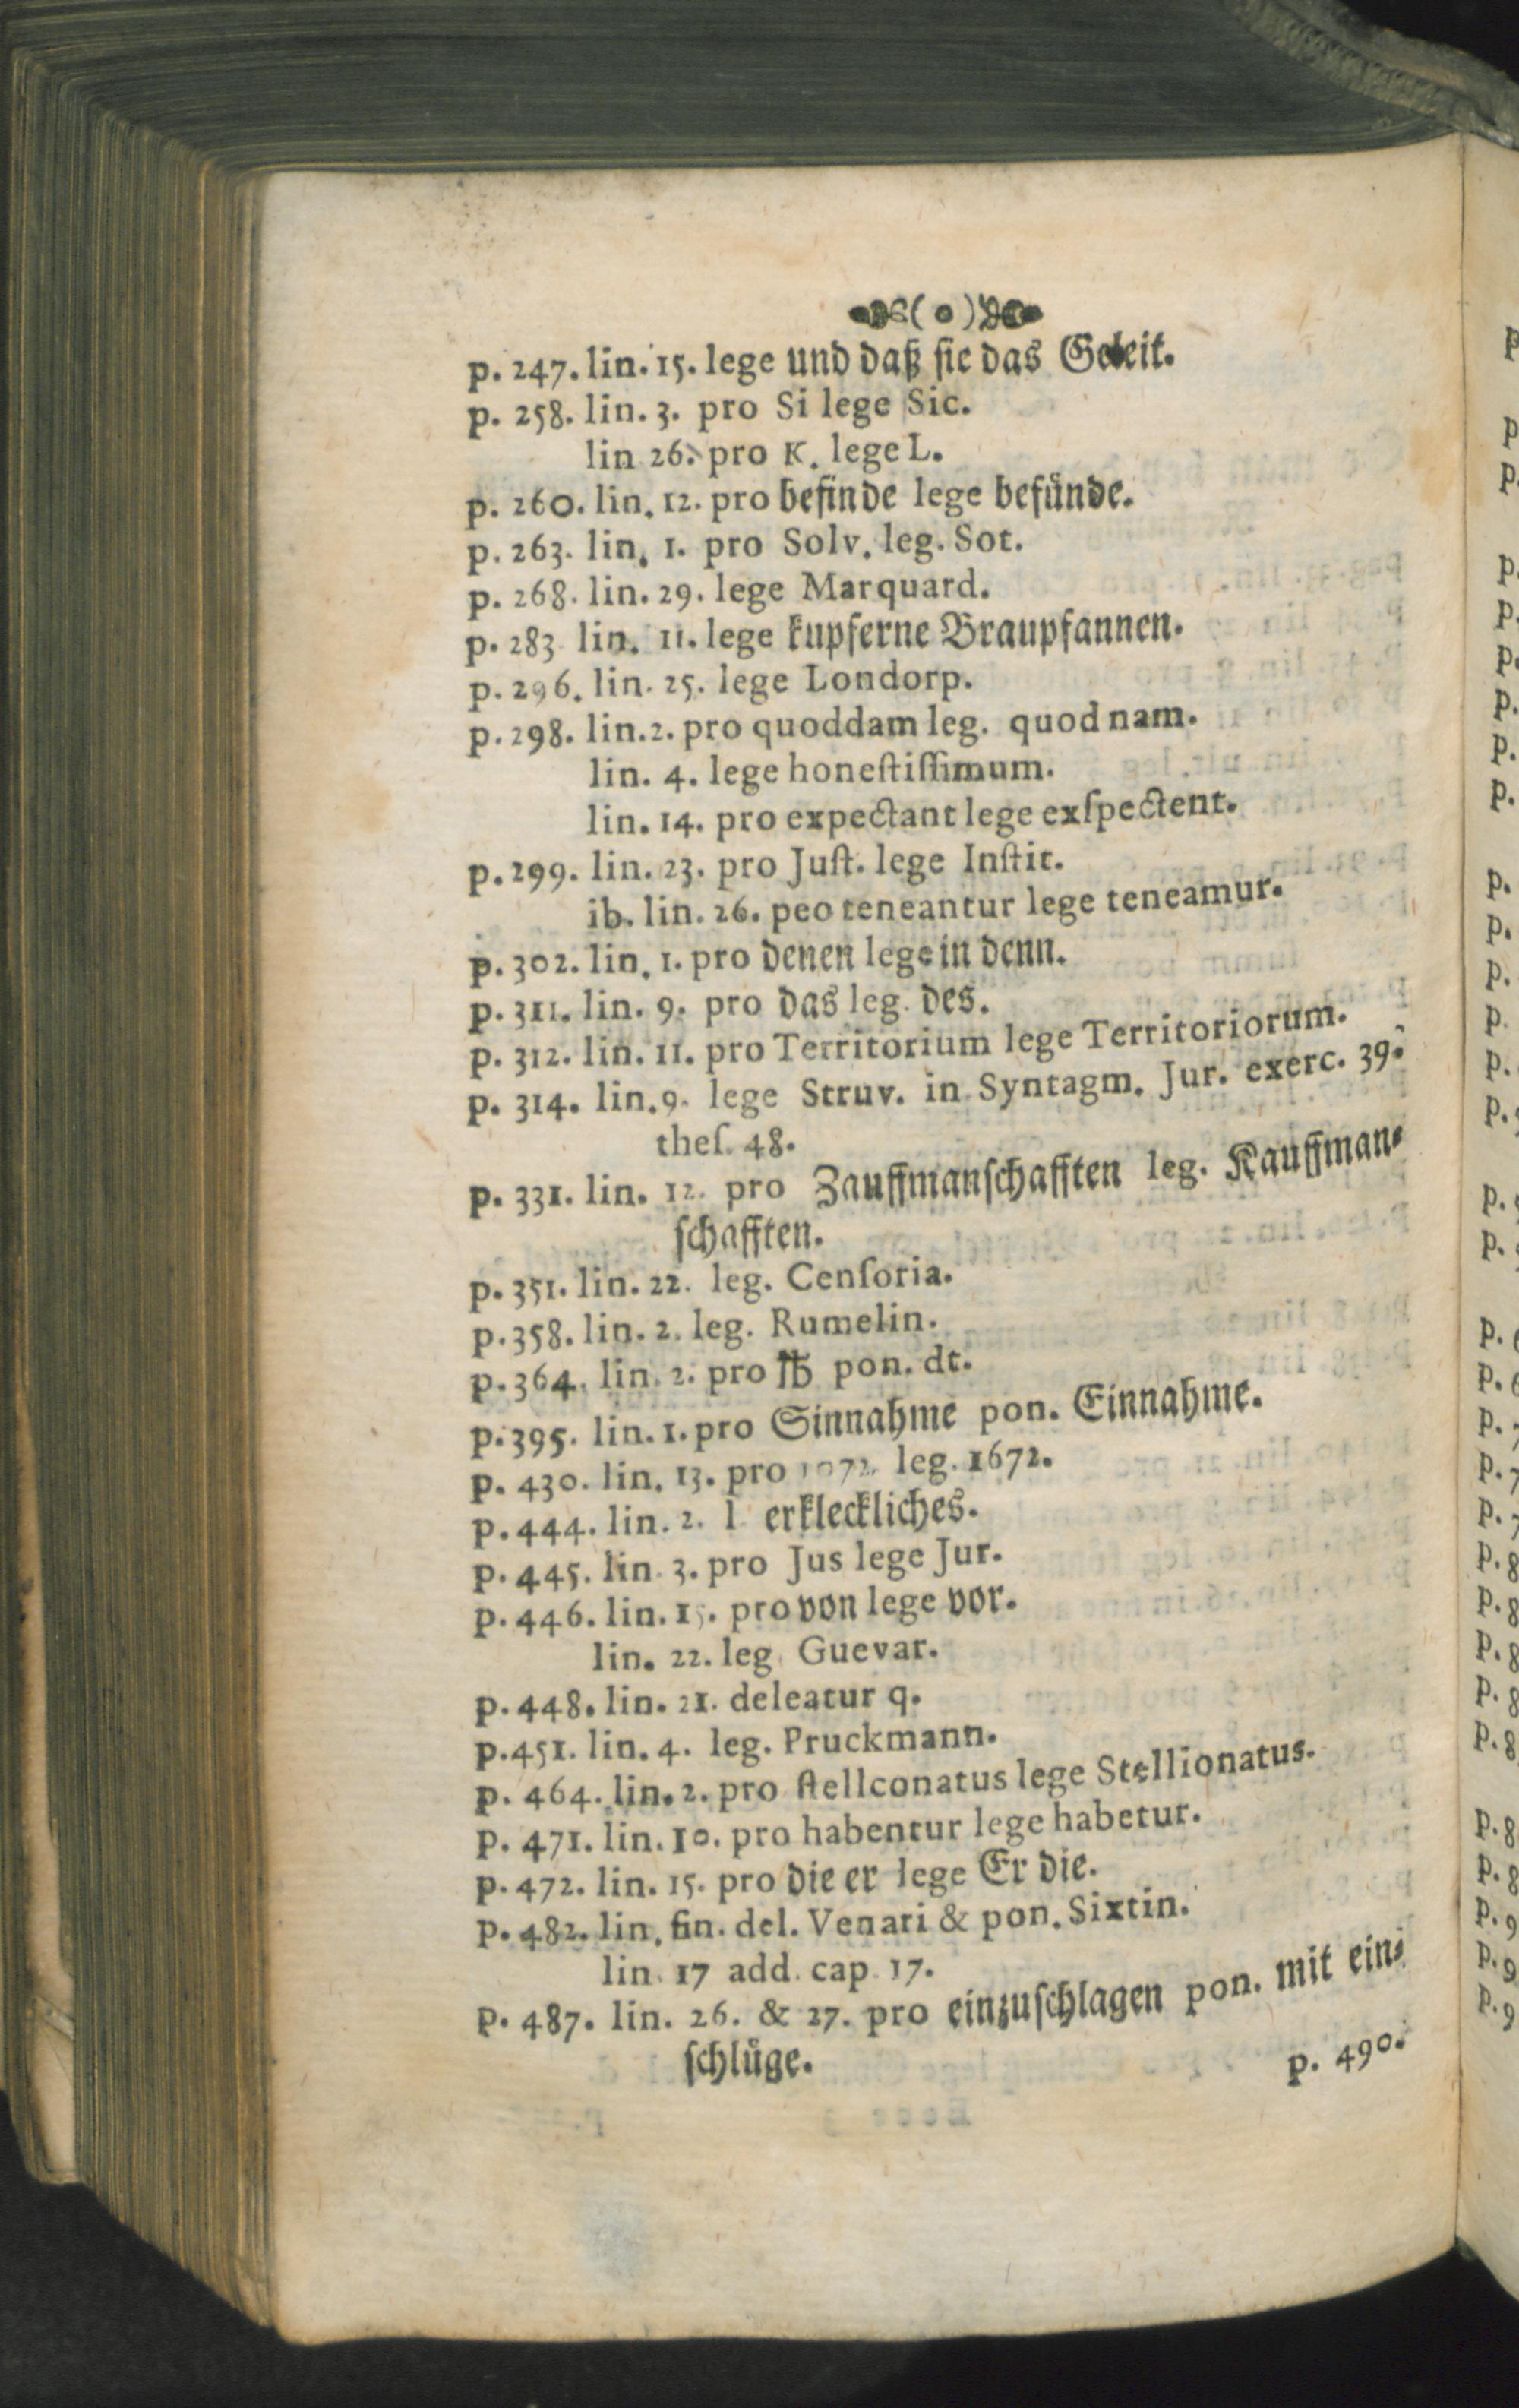 (o)
p. 247. lin. 15. lege und daß sie das Geleit.
p. 258. lin. 3. pro Si lege Sic.
lin 26. pro K. lege L.
p. 260. lin. 12. pro befinde lege befünde.
p. 263. lin. 1. pro Solv. leg. Sot.
p. 268. lin. 29. lege Marquard.
p. 283 lin. 11. lege kupferne Braupfannen.
p. 296. lin. 25. lege Londorp.
p. 298. lin. 2. pro quoddam leg. quodnam.
lin. 4. lege honeſtiſſimum.
lin. 14. pro expectant lege exſpectent.
p. 299. lin. 23. pro Juſt. lege Inſtit.
ib. lin. 26. peo teneantur lege teneamur.
p. 302. lin. 1. pro denen lege in denn.
p. 311. lin. 9. pro das leg. des.
p. 312. lin. 11. pro Territorium lege Territoriorum.
p. 314. lin. 9. lege Struv. in Syntagm. Jur. exerc. 39.
theſ. 48.
p. 331. lin. 12. pro Zauffmanſchafften leg. Kauffman-
ſchafften.
p. 351. lin. 22. leg. Cenſoria.
p. 358. lin. 2. leg. Rumelin.
p. 364. lin. 2. pro ℔ pon. dt.
p. 395. lin. 1. pro Sinnahme pon. Einnahme.
p. 430. lin. 13. pro 1072. leg. 1672.
p. 444. lin. 2. l erkleckliches.
p. 445. lin. 3. pro Jus lege Jur.
p. 446. lin. 15. pro von lege vor.
lin. 22. leg Guevar.
p. 448. lin. 21. deleatur q.
p. 451. lin. 4. leg. Pruckmann.
p. 464. lin. 2. pro ſtellconatus lege Stellionatus.
p. 471. lin. 10. pro habentur lege habetur.
p. 472. lin. 15. pro die er lege Er die.
p. 482. lin. fin. del. Venari & pon. Sixtin.
lin. 17 add. cap. 17.
p. 487. lin. 26. & 27. pro einzuſchlagen pon. mit ein-
ſchlüge.
p. 490.